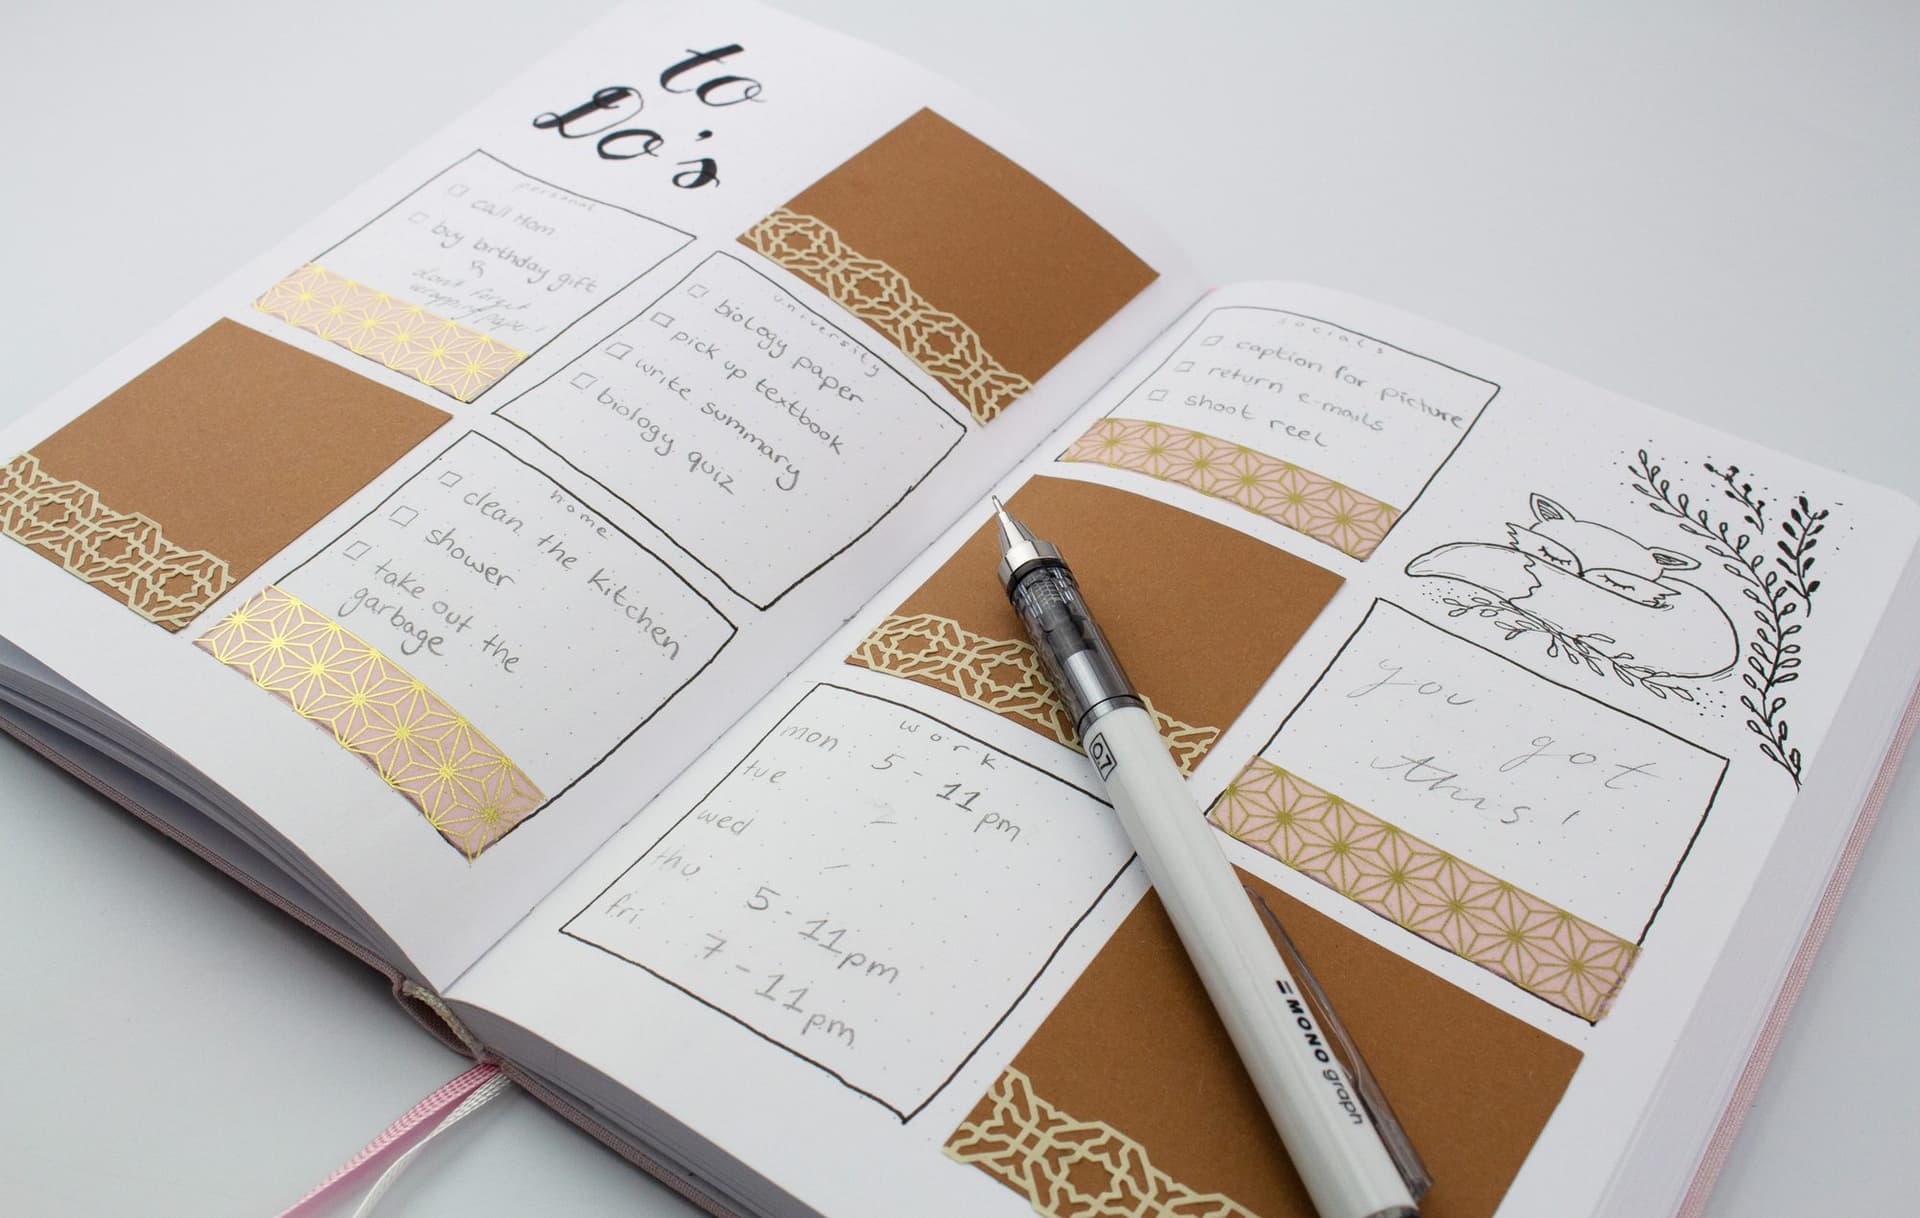 to
Do's
personal
call Mom
buy birthday gift
&
don't forget
wrapping paper!
university
biology paper
pick up textbook
write summary
biology quiz
home
clean the kitchen
shower
take out the
garbage
socials
caption for picture
return e-mails
shoot reel
work
mon 5 - 11 pm
tue -
wed -
thu 5 - 11 pm
fri 7 - 11 pm
you
got
this!
0.7
MONO graph